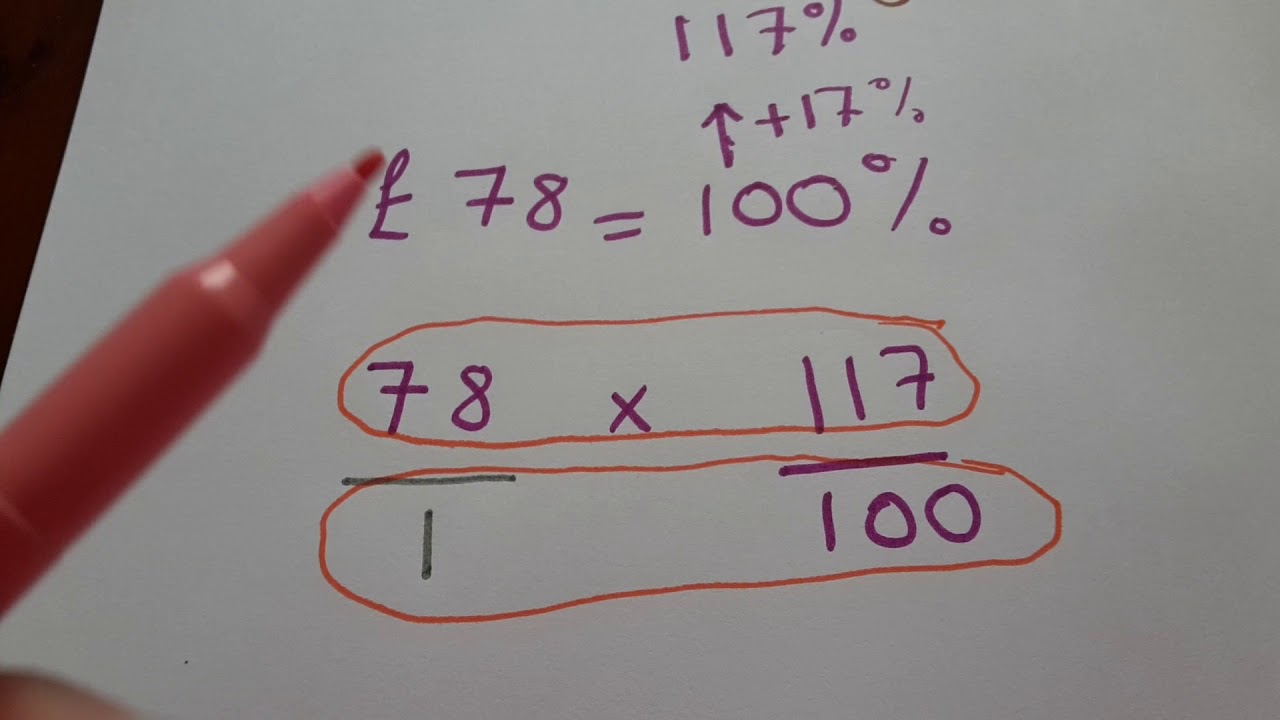 117%
↑ +17%
£ 78 = 100%
78 x 117
1 100